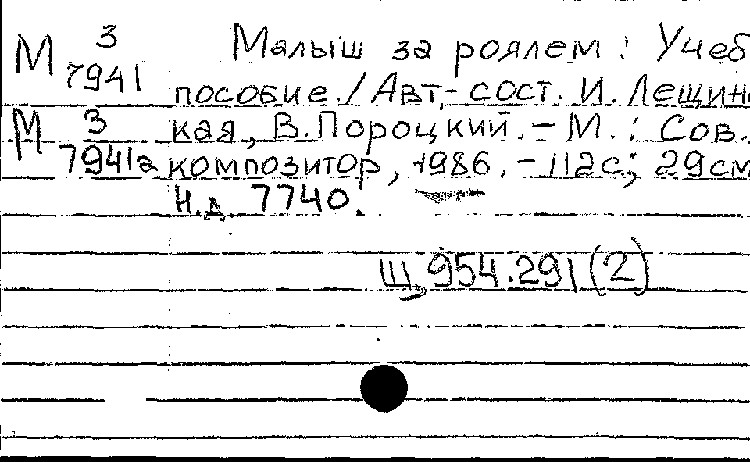 М 3/7941 Малыш за роялем : Учеб
пособие. / Авт.-сост. И. Лещинс
М 3/7941а кая, В. Пороцкий. – М. : Сов.
композитор, 1986. – 112с; 29см
Н.д. 7740.
Щ 954.291 (2)